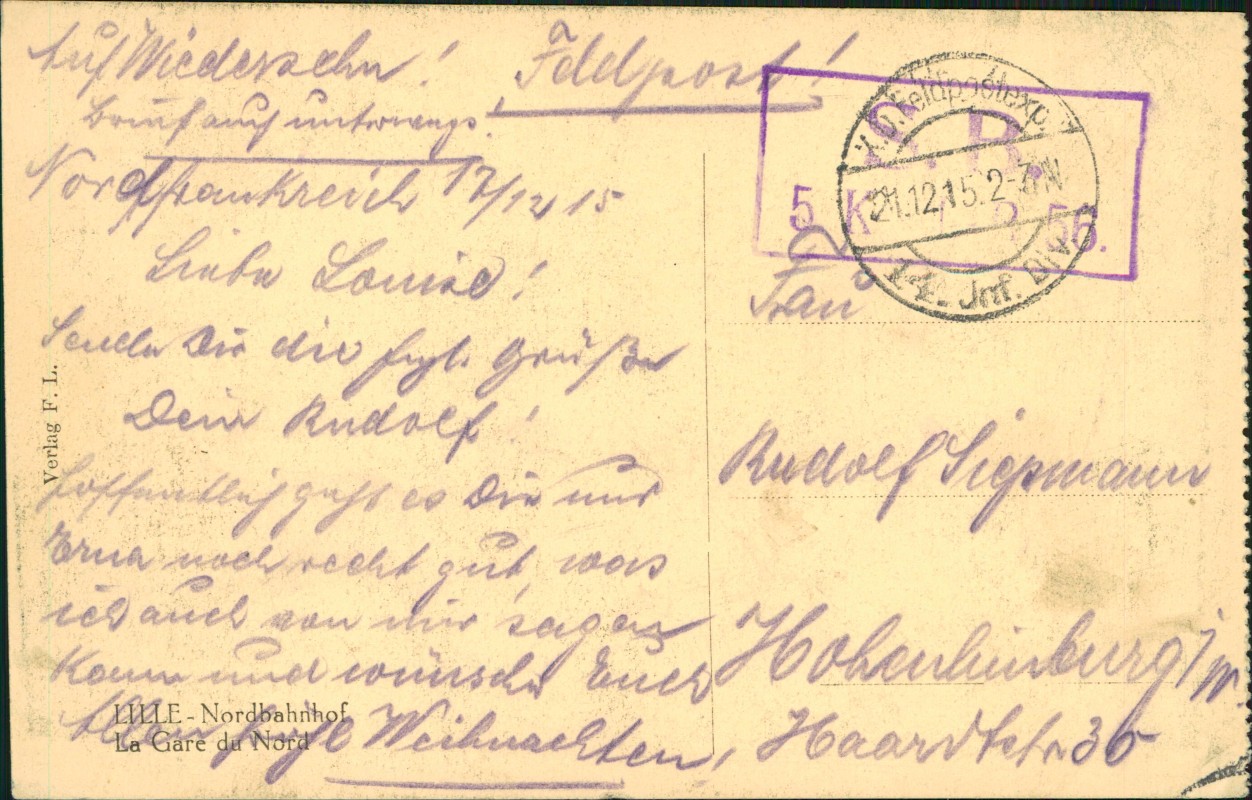 Auf Wiedersehn! Feldpost!
Brief auch unterwegs.
Nordfrankreich 17/12 15
Liebe Louise!
Sende Dir die hrzl. Grüße
Dein Rudolf!
Hoffentlich geht es Dir und
Erna noch recht gut, was
ich auch von mir sagen
kann und wünsche Euch
Allen Weihnachten,
LILLE - Nordbahnhof
La Gare du Nord
Verlag F. L.
S. B.
5. K. R. 56.
K.D. Feldpostexp.
21.12.15.2-3N.
14. Inf. Div.
Frau
Rudolf Siepmann
Hohenlimburg i/W.
Haardtstr. 35